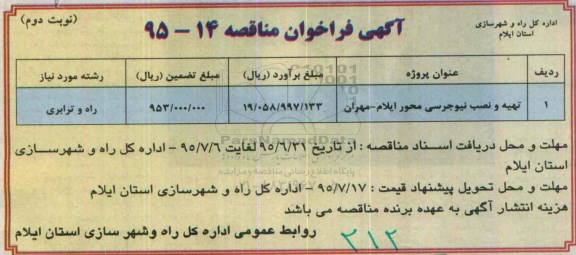 اداره کل راه و شهرسازی
استان ایلام
آگهی فراخوان مناقصه ۱۴ - ۹۵
(نوبت دوم)
ردیف عنوان پروژه مبلغ برآورد (ریال) مبلغ تضمین (ریال) رشته مورد نیاز
۱ تهیه و نصب نیوجرسی محور ایلام-مهران ۱۹/۰۵۸/۹۹۷/۱۳۳ ۹۵۳/۰۰۰/۰۰۰ راه و ترابری
ParsNamadData
پایگاه اطلاع رسانی مناقصه و مزایده
مهلت و محل دریافت اسـناد مناقصه : از تاریخ ۹۵/۶/۳۱ لغایت ۹۵/۷/۶ - اداره کل راه و شهرسـازی
استان ایلام
مهلت و محل تحویل پیشنهاد قیمت : ۹۵/۷/۱۷ - اداره کل راه و شهرسازی استان ایلام
هزینه انتشار آگهی به عهده برنده مناقصه می باشد
روابط عمومی اداره کل راه وشهر سازی استان ایلام
۲۱۲